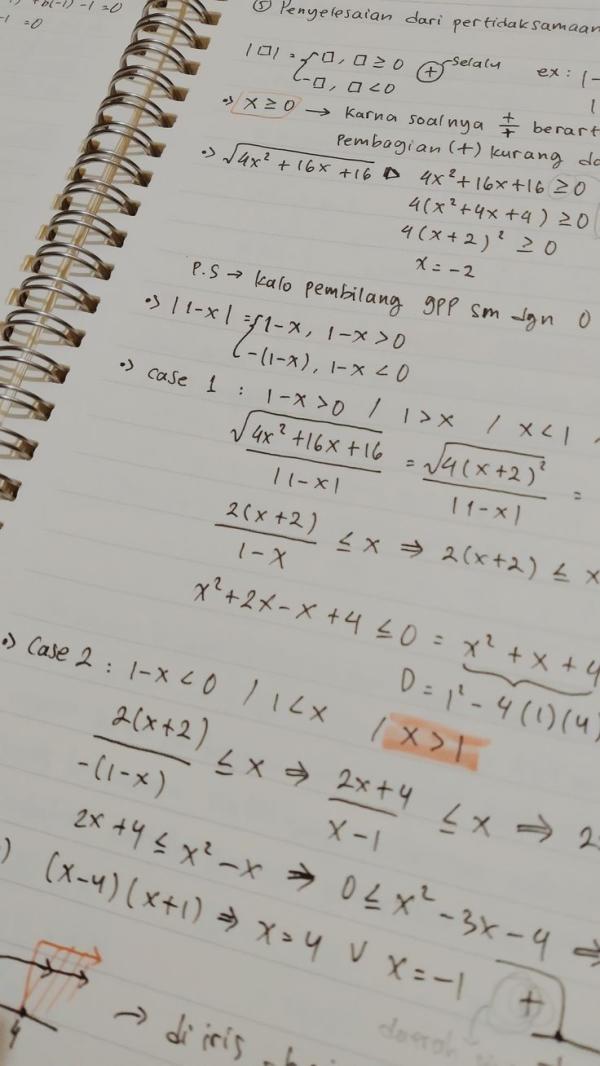 -1 =0
⑤ Penyelesaian dari pertidaksamaan
|□| = { □, □ ≥ 0 ⊕ → selalu ex : |1-
-□, □ < 0
•> x ≥ 0 → karna soalnya +/+ berart
Pembagian (+) kurang da
•> √4x² + 16x + 16 ▷ 4x² + 16x + 16 ≥ 0
4(x² + 4x + 4) ≥ 0
4(x+2)² ≥ 0
x = -2
P.S → kalo pembilang gpp sm dgn 0
•> |1-x| = { 1-x, 1-x > 0
-(1-x), 1-x < 0
•> case 1 : 1-x > 0 / 1 > x / x < 1
√4x² + 16x + 16 / |1-x| = √4(x+2)² / |1-x| =
2(x+2) / 1-x ≤ x ⇒ 2(x+2) ≤ x
x² + 2x - x + 4 ≤ 0 = x² + x + 4
D = 1² - 4(1)(4)
•> Case 2 : 1-x < 0 / 1 < x / x > 1
2(x+2) / -(1-x) ≤ x ⇒ 2x+4 / x-1 ≤ x ⇒ 2
2x + 4 ≤ x² - x ⇒ 0 ≤ x² - 3x - 4 ⇒
(x-4)(x+1) ⇒ x = 4 ∨ x = -1
+
4
→ di iris